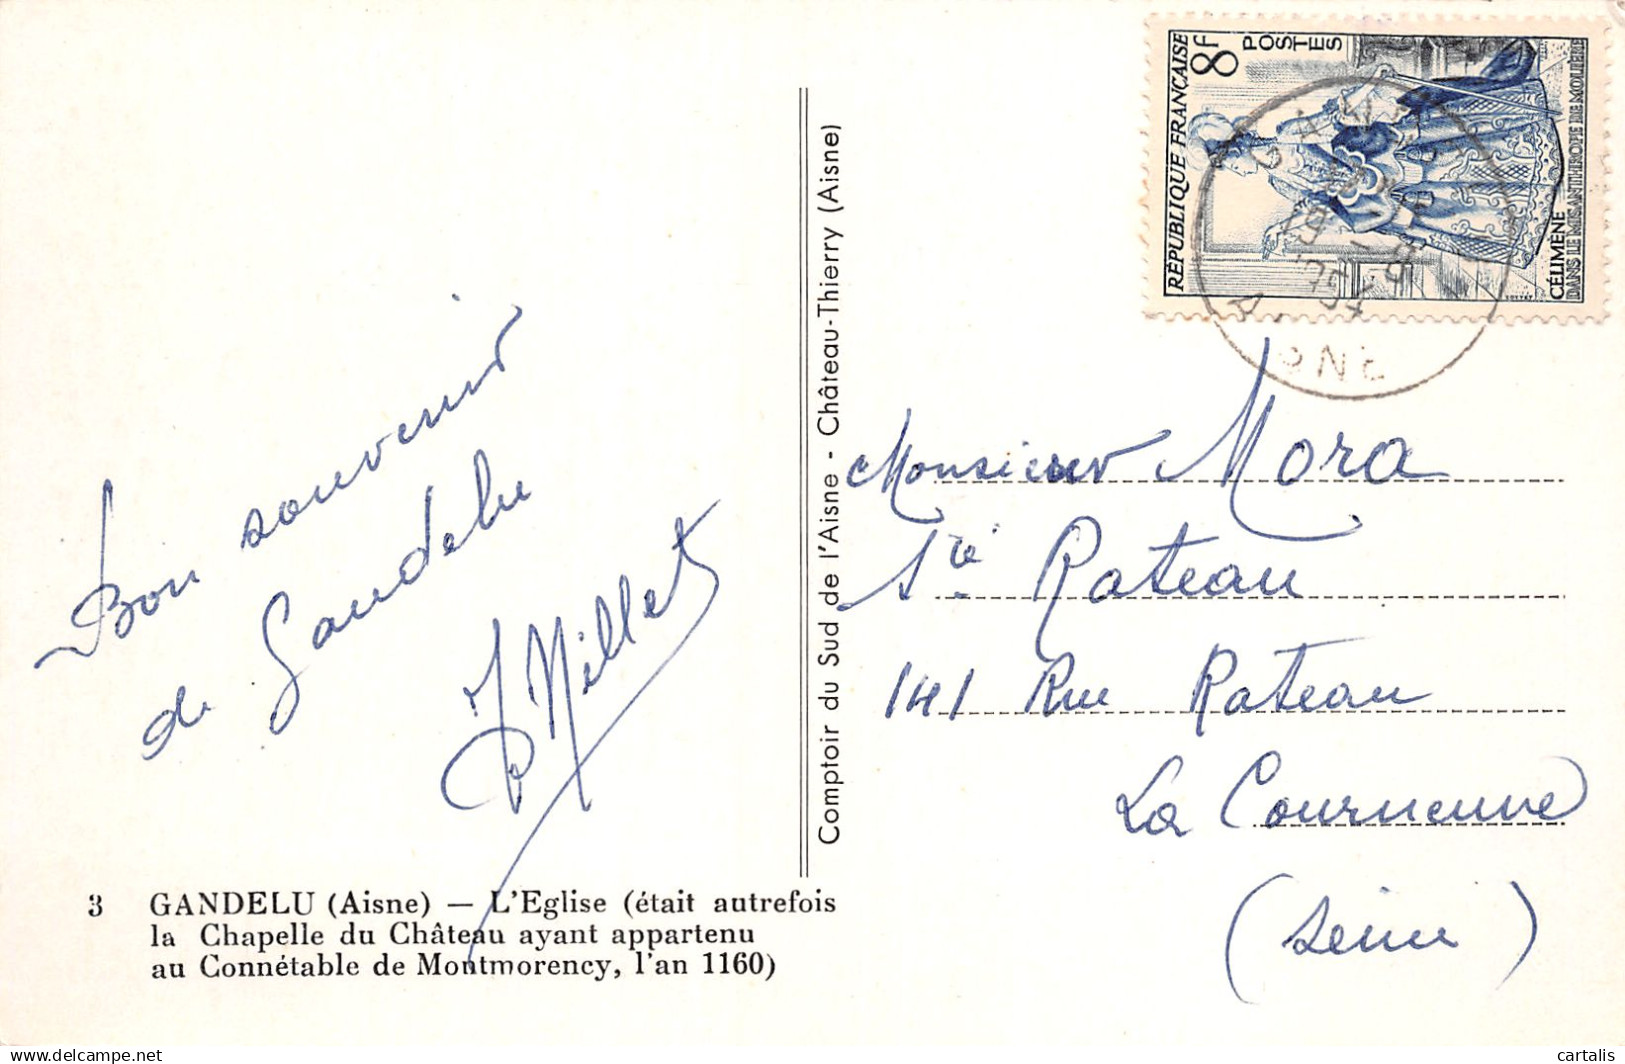 Bon souvenir
de Gandelu
J Millet
3 GANDELU (Aisne) — L'Eglise (était autrefois
la Chapelle du Château ayant appartenu
au Connétable de Montmorency, l'an 1160)
Comptoir du Sud de l'Aisne - Château-Thierry (Aisne)
RÉPUBLIQUE FRANÇAISE
8F
POSTES
CÉLIMÈNE
DANS LE MISANTHROPE DE MOLIÈRE
AISNE
Monsieur Mora
Sté Rateau
141 Rue Rateau
La Courneuve
(Seine)
delcampe.net
cartalis